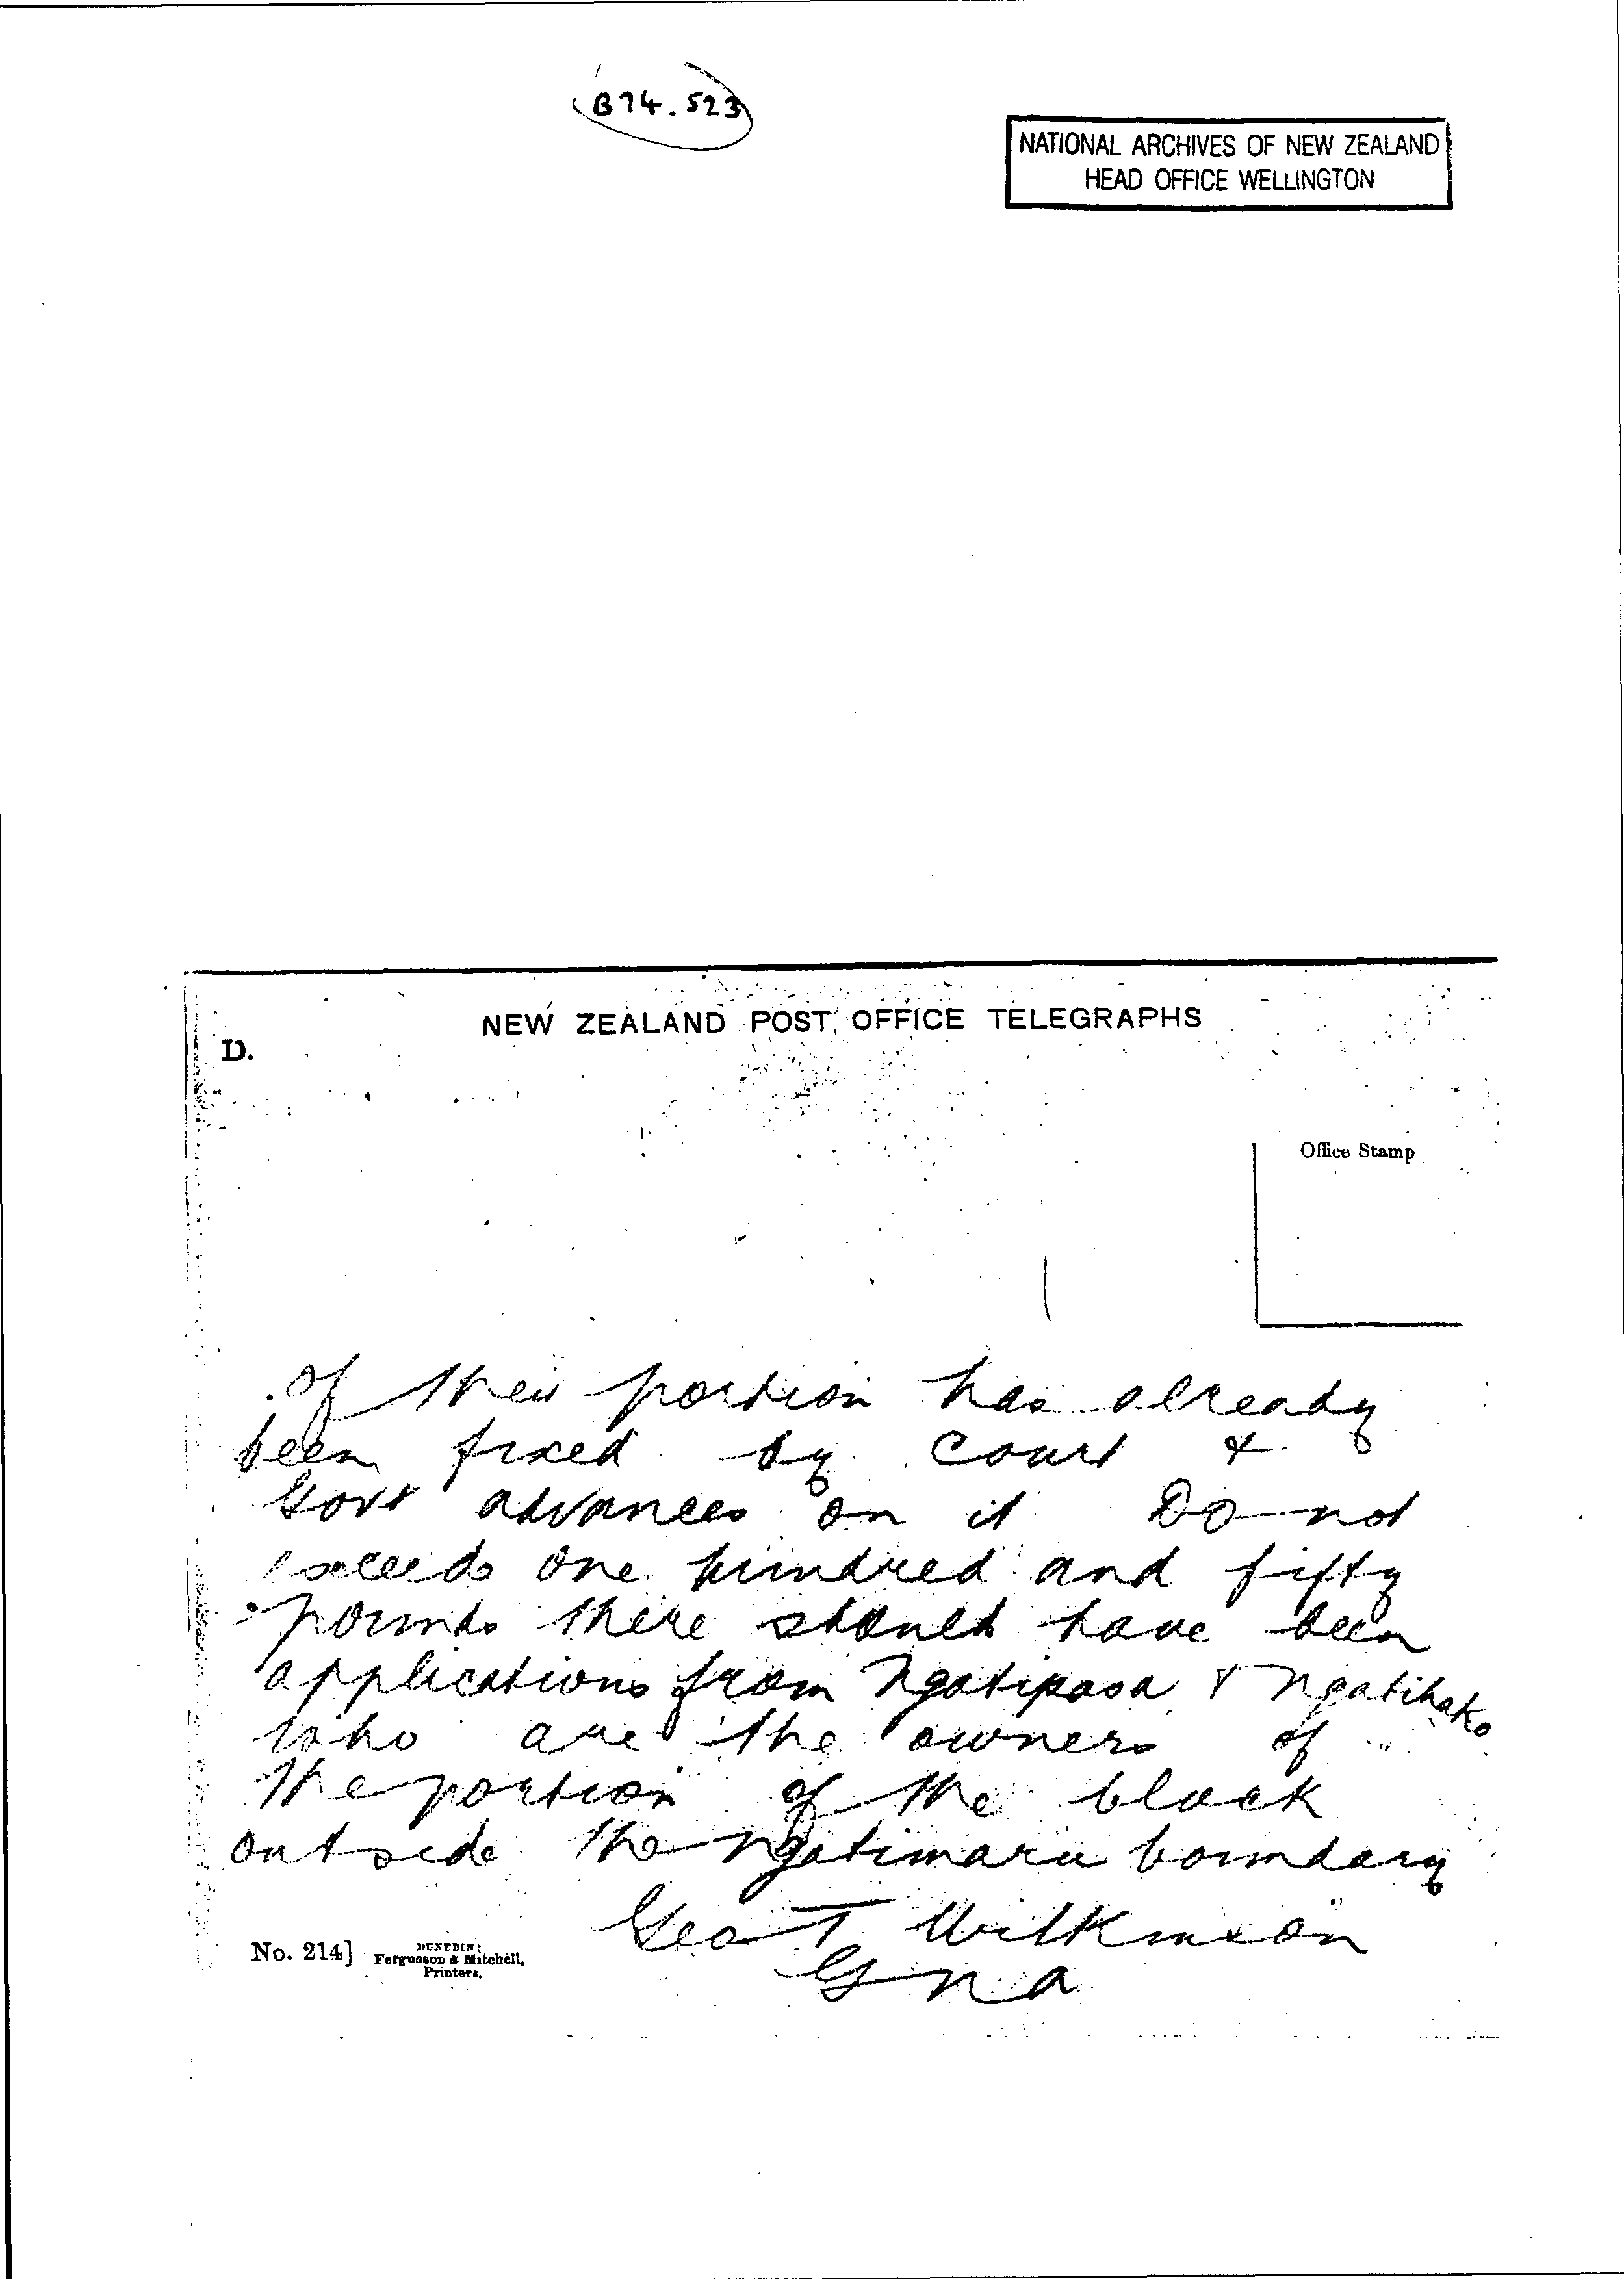 B74.523
NATIONAL ARCHIVES OF NEW ZEALAND
HEAD OFFICE WELLINGTON
NEW ZEALAND POST OFFICE TELEGRAPHS
D.
Office Stamp
of their portion has already
been fixed by Court &
Govt advances on it Do not
exceeds one hundred and fifty
pounds there should have been
applications from Ngatipaoa & Ngatihako
who are the owners of
the portion of the block
outside the Ngatimaru boundary
Geo T Wilkinson
G n a
No. 214]
DUNEDIN:
Fergusson & Mitchell,
Printers.